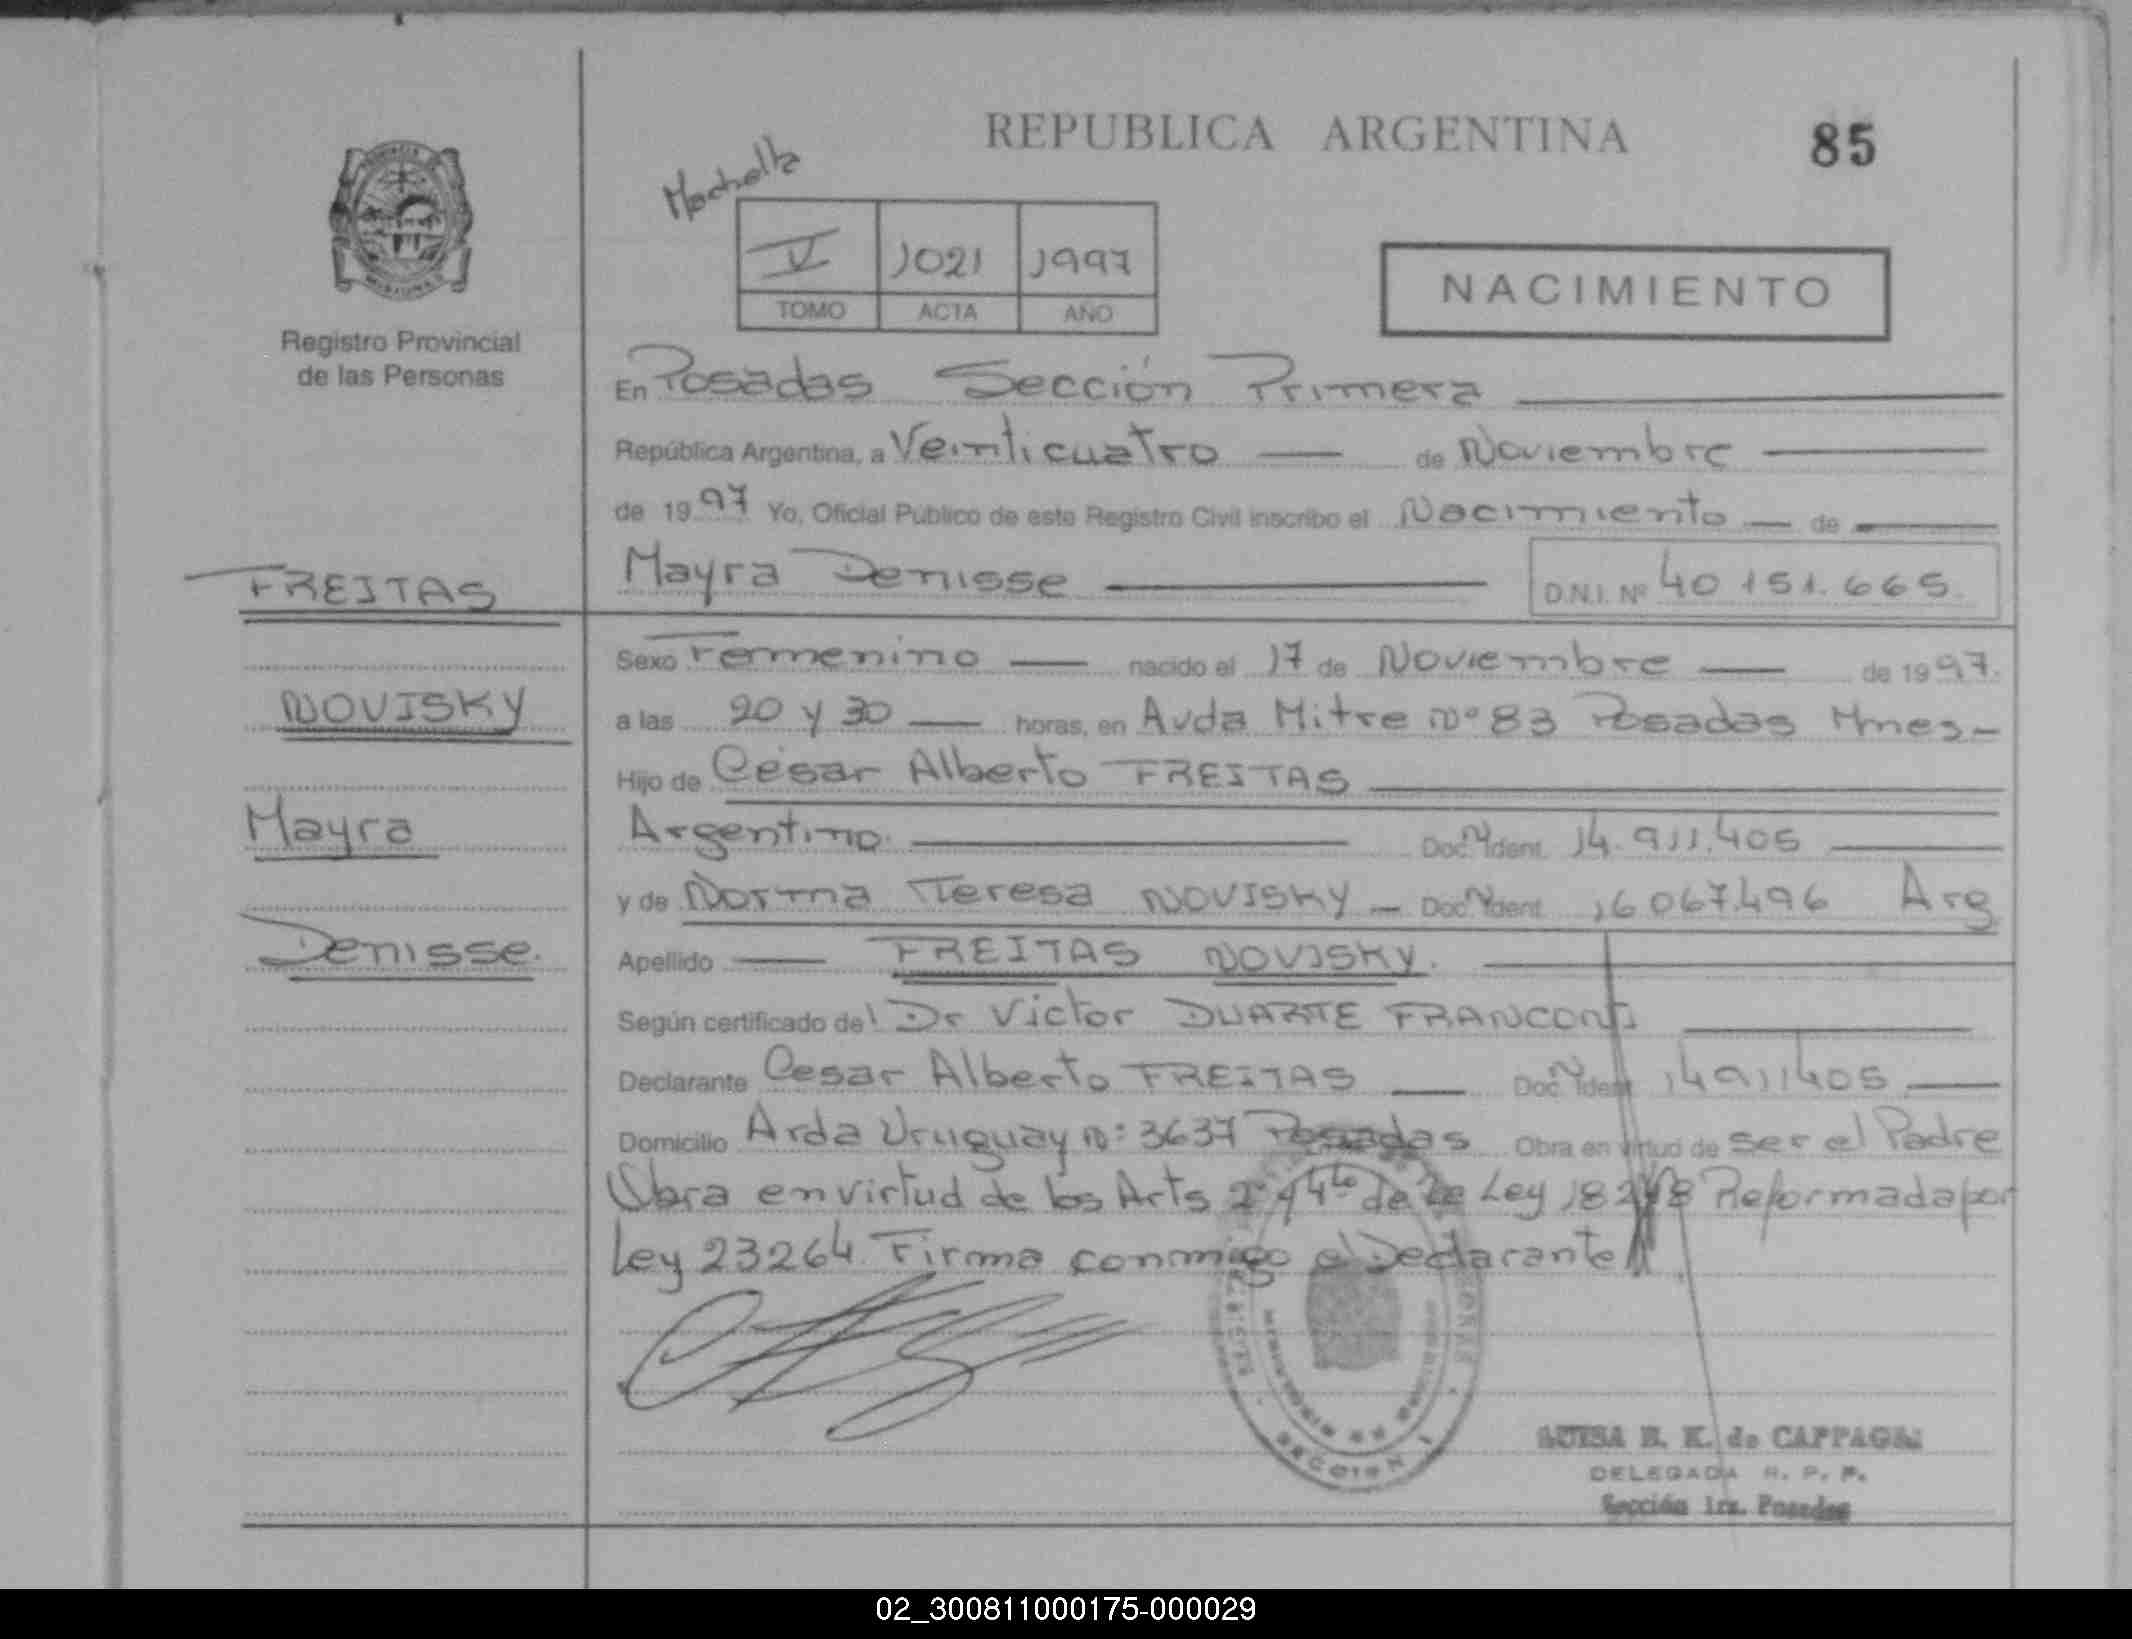 REPUBLICA ARGENTINA
85
V 1021 1997
TOMO ACTA AÑO
NACIMIENTO
Registro Provincial
de las Personas
En Posadas Sección Primera
República Argentina, a Veinticuatro de Noviembre
de 1997 Yo, Oficial Público de este Registro Civil inscribo el Nacimiento de
FREITAS
Mayra Denisse D.N.I. Nº 40151.665
Sexo Femenino nacido el 17 de Noviembre de 1997.
NOVISKY
a las 20 y 30 horas, en Avda Mitre Nº 83 Posadas Mnes
Hijo de César Alberto FREITAS
Mayra
Argentino. Doc. Ident. 14.911.405
y de Norma Teresa NOVISKY Doc. Ident. 16067.496 Arg
Denisse.
Apellido FREITAS NOVISKY.
Según certificado del Dr Victor DUARTE FRANCONI
Declarante Cesar Alberto FREITAS Doc. Ident. 14911405
Domicilio Avda Uruguay Nº: 3637 Posadas Obra en virtud de ser el Padre
Obra en virtud de los Arts 2º y 4to de la Ley 18248 Reformada por
Ley 23264. Firma conmigo el Declarante
SECCION 1
LUISA E. K. de CAPPAGLI
DELEGADA R. P. P.
Sección 1ra. Posadas
02_300811000175-000029